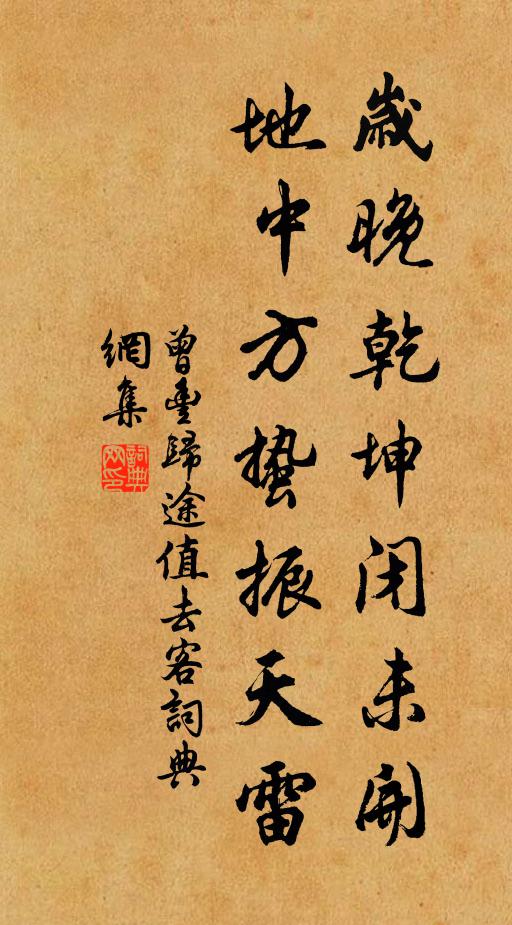 歲晚乾坤閉未開
地中方蟄振天雷
曾豐歸途值去客詞典
網集
詞典網印